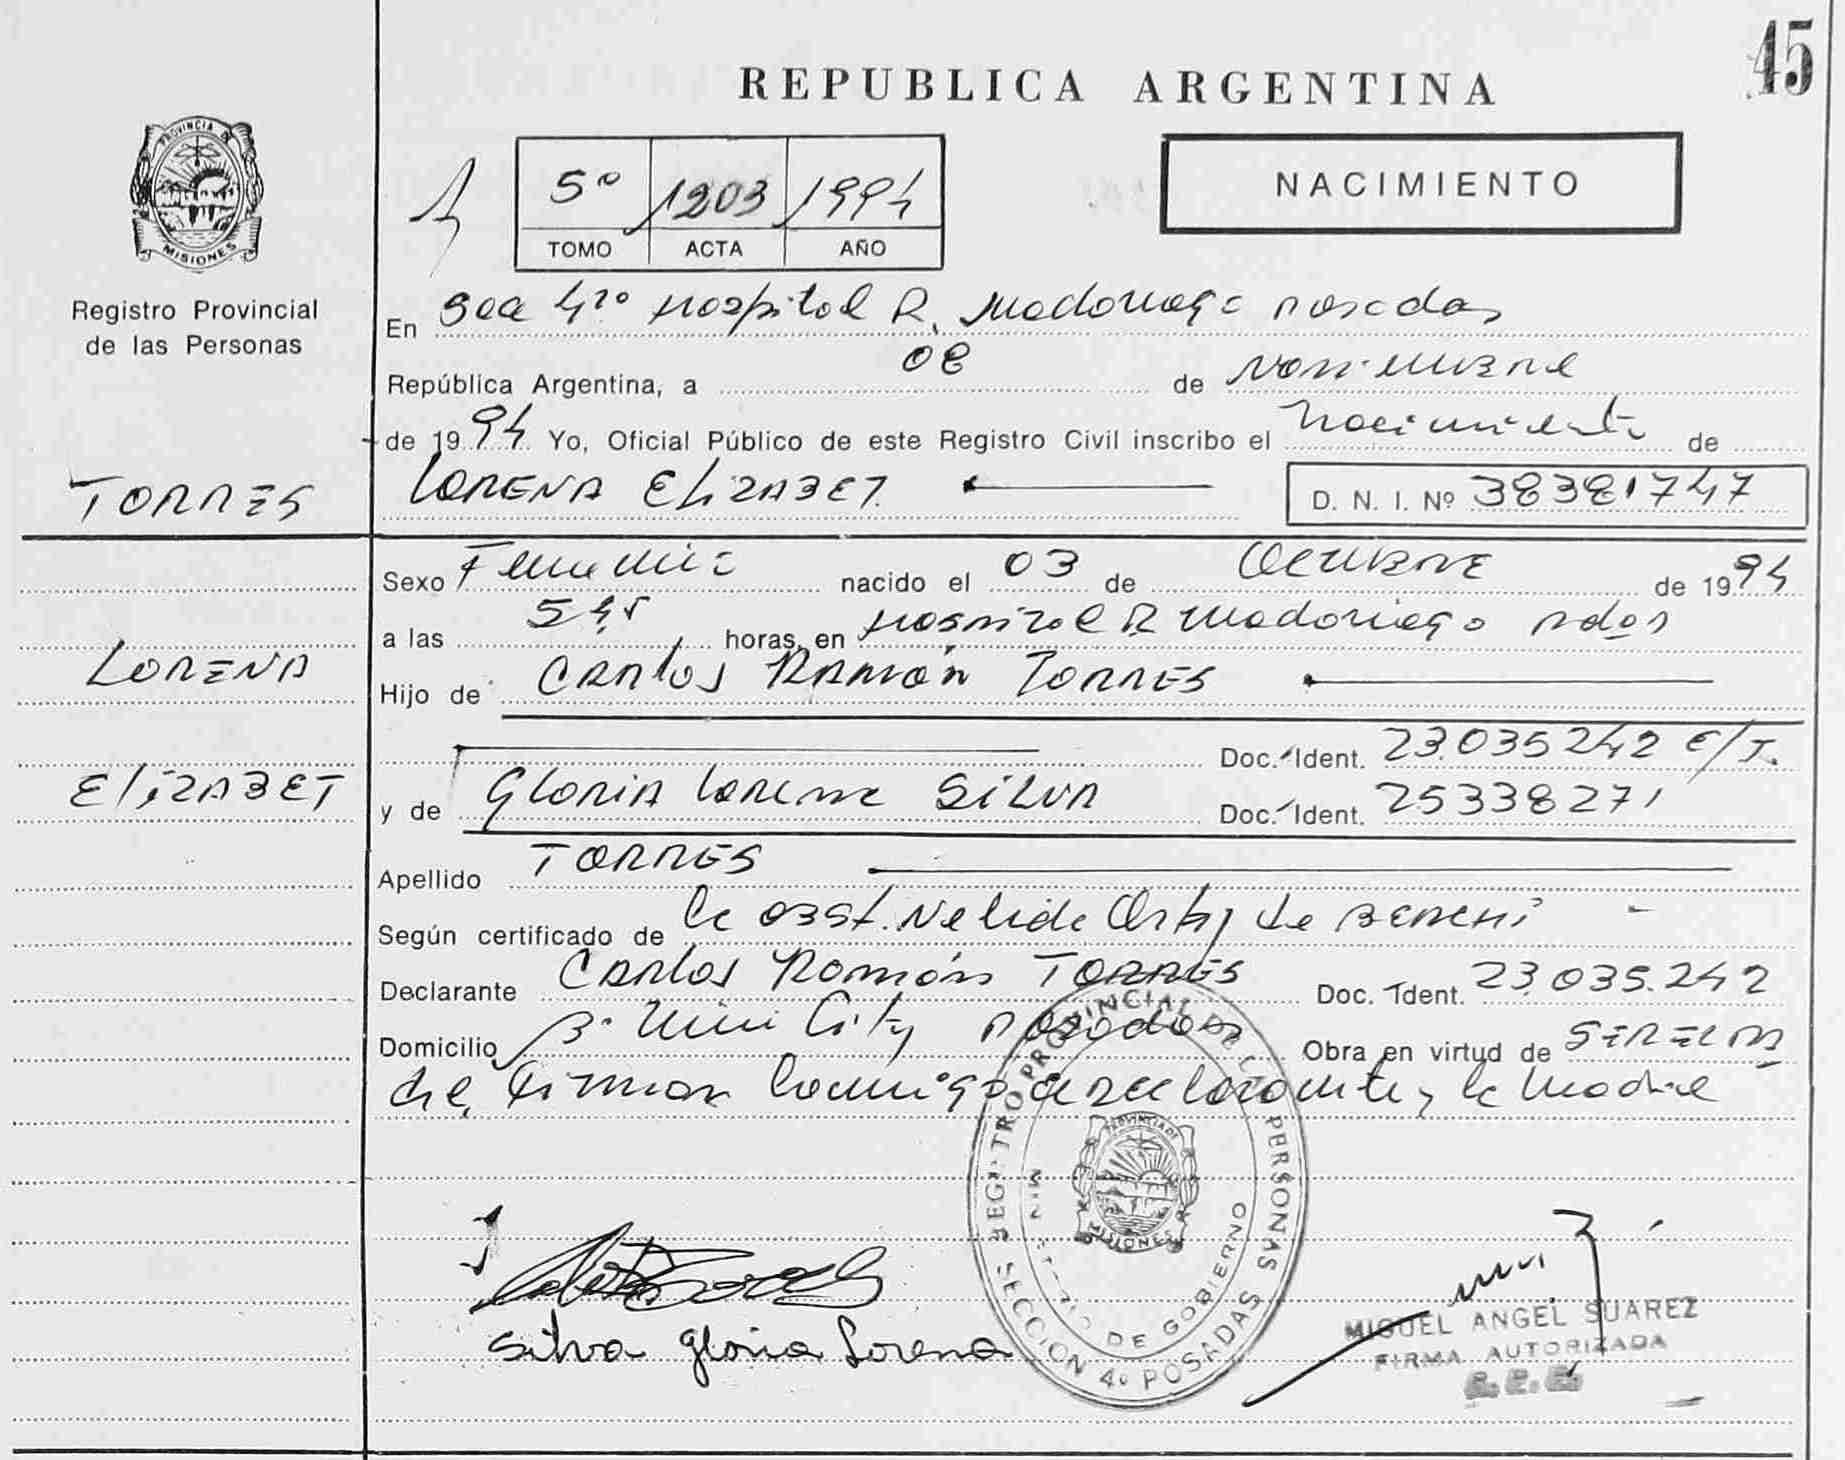 45
REPUBLICA ARGENTINA
PROVINCIA DE
MISIONES
5º 1203 1994
TOMO ACTA AÑO
NACIMIENTO
Registro Provincial
de las Personas
En Sec 4ta Hospital R. Madariaga Posadas
República Argentina, a 08 de Noviembre
de 1994 Yo, Oficial Público de este Registro Civil inscribo el Nacimiento de
TORRES
LORENA ELIZABET D. N. I. Nº 38381747
Sexo Femenino nacido el 03 de OCTUBRE de 1994
a las 5 hs horas, en Hospital R Madariaga Pdas
LORENA
Hijo de CARLOS RAMÓN TORRES
Doc. Ident. 23.035242 E/T.
ELIZABET
y de GLORIA Lorena SILVA Doc. Ident. 25338271
Apellido TORRES
Según certificado de la OBST. Nelida Ortiz de
Declarante CARLOS RAMÓN TORRES Doc. Ident. 23.035.242
Domicilio Bº Mini City Posadas Obra en virtud de
del. Firman conmigo declarante y la Madre
REGISTRO PROVINCIAL DE LAS PERSONAS
MINISTERIO DE GOBIERNO
PROVINCIA DE
MISIONES
SECCION 4º POSADAS
Silva Gloria Lorena
MIGUEL ANGEL SUAREZ
FIRMA AUTORIZADA